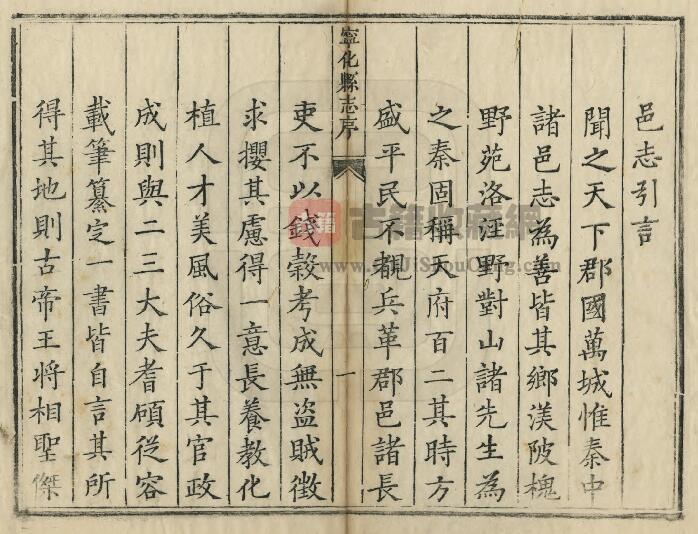 邑志引言
聞之天下郡國萬城惟秦中
諸邑志為善皆其鄉渼陂槐
野苑洛涇野對山諸先生為
之秦固稱天府百二其時方
盛平民不覩兵革郡邑諸長
寧化縣志序
一
吏不以錢穀考成無盜賊徴
求攖其慮得一意長養教化
植人才美風俗久于其官政
成則與二三大夫耆碩從容
載筆纂定一書皆自言其所
得其地則古帝王將相聖傑
古籍收藏網